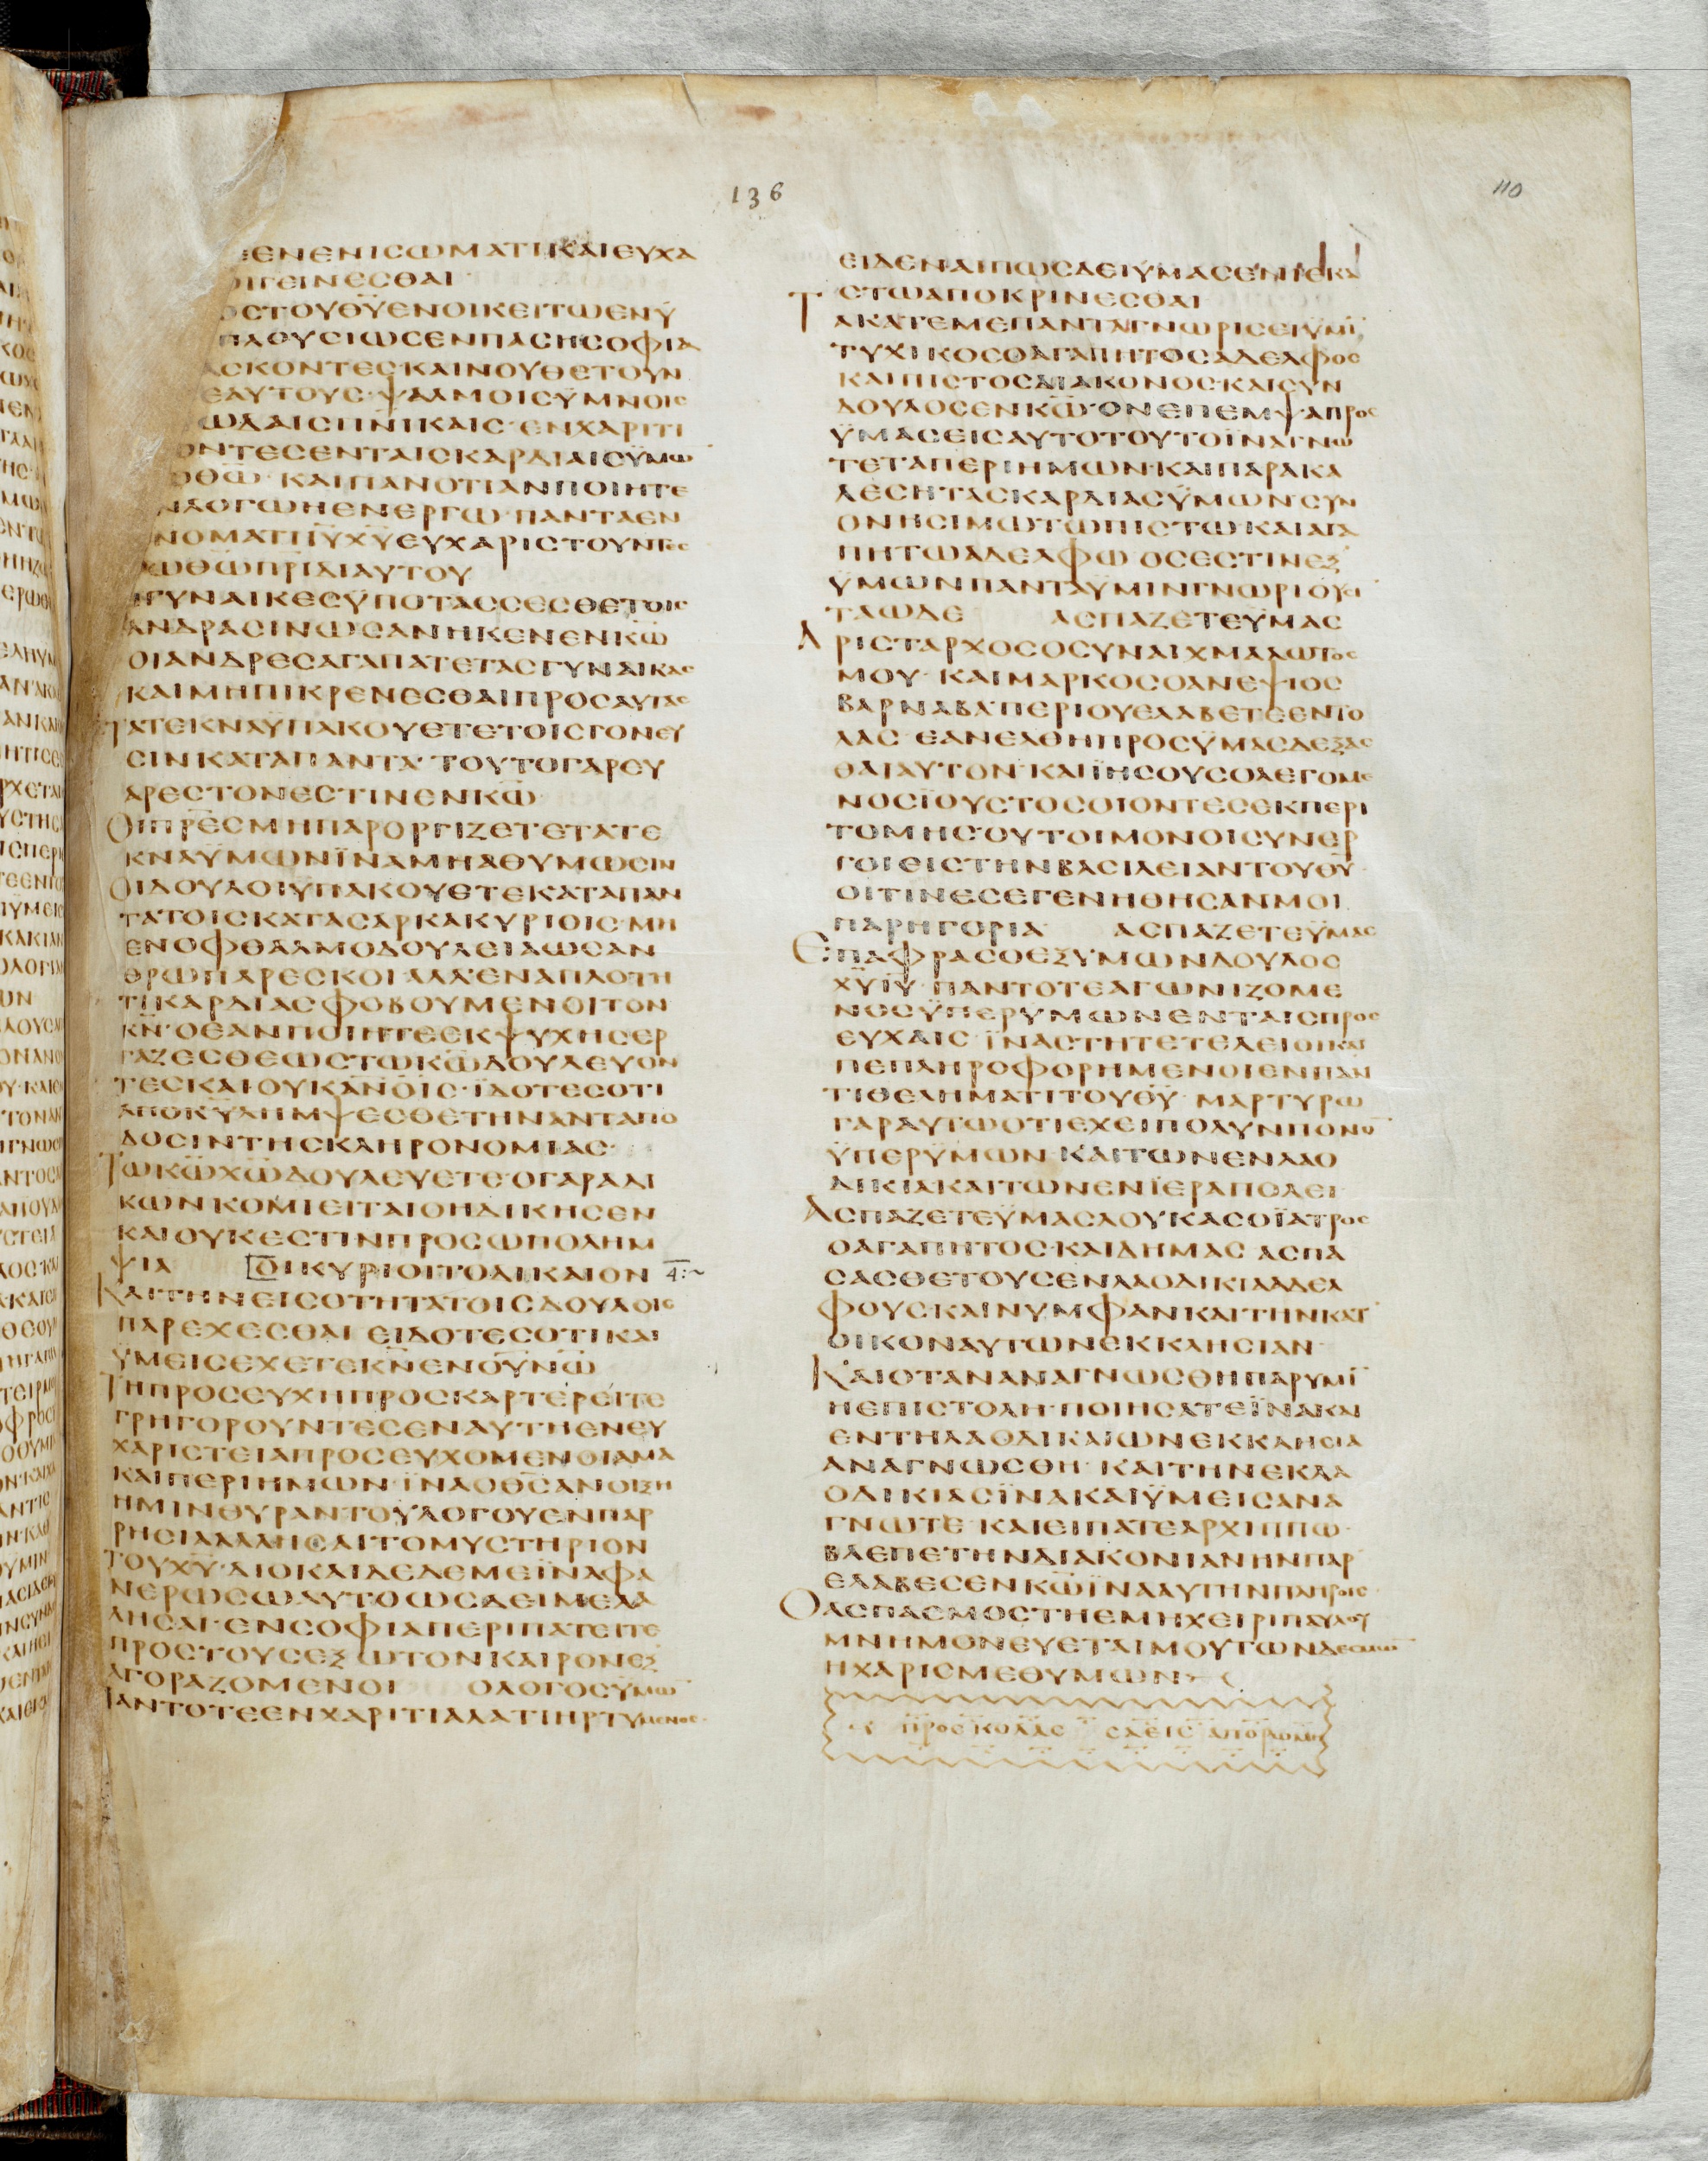 136
110
ΕΝ ΕΝΙ ΣΩΜΑΤΙ ΚΑΙ ΕΥΧΑ
ΓΕΙΝΕΣΘΑΙ
ΟΣ ΤΟΥ ΘΥ ΕΝΟΙΚΕΙΤΩ ΕΝ Ϋ
ΠΛΟΥΣΙΩΣ ΕΝ ΠΑΣΗ ΣΟΦΙΑ
ΑΣΚΟΝΤΕΣ ΚΑΙ ΝΟΥΘΕΤΟΥΝ
ΕΑΥΤΟΥΣ· ΨΑΛΜΟΙΣ ΫΜΝΟΙΣ
ΩΔΑΙΣ ΠΝΙΚΑΙΣ· ΕΝ ΧΑΡΙΤΙ
ΟΝΤΕΣ ΕΝ ΤΑΙΣ ΚΑΡΔΙΑΙΣ ΫΜΩ̅
ΘΩ· ΚΑΙ ΠΑΝ ΟΤΙ ΑΝ ΠΟΙΗΤΕ
ΛΟΓΩ Η ΕΝ ΕΡΓΩ· ΠΑΝΤΑ ΕΝ
ΝΟΜΑΤΙ ΙΥ ΧΥ ΕΥΧΑΡΙΣΤΟΥΝΤΕΣ
ΤΩ ΘΩ ΠΡΙ ΔΙ ΑΥΤΟΥ
ΓΥΝΑΙΚΕΣ ΫΠΟΤΑΣΣΕΣΘΕ ΤΟΙΣ
ΑΝΔΡΑΣΙΝ ΩΣ ΑΝΗΚΕΝ ΕΝ ΚΩ
ΟΙ ΑΝΔΡΕΣ ΑΓΑΠΑΤΕ ΤΑΣ ΓΥΝΑΙΚΑΣ
ΚΑΙ ΜΗ ΠΙΚΡΕΝΕΣΘΑΙ ΠΡΟΣ ΑΥΤΑΣ
ΤΑ ΤΕΚΝΑ ΫΠΑΚΟΥΕΤΕ ΤΟΙΣ ΓΟΝΕΥ
ΣΙΝ ΚΑΤΑ ΠΑΝΤΑ· ΤΟΥΤΟ ΓΑΡ ΕΥ
ΑΡΕΣΤΟΝ ΕΣΤΙΝ ΕΝ ΚΩ
ΟΙ ΠΡΕΣ ΜΗ ΠΑΡΟΡΓΙΖΕΤΕ ΤΑ ΤΕ
ΚΝΑ ΫΜΩΝ ΪΝΑ ΜΗ ΑΘΥΜΩΣΙΝ
ΟΙ ΔΟΥΛΟΙ ΫΠΑΚΟΥΕΤΕ ΚΑΤΑ ΠΑΝ
ΤΑ ΤΟΙΣ ΚΑΤΑ ΣΑΡΚΑ ΚΥΡΙΟΙΣ· ΜΗ
ΕΝ ΟΦΘΑΛΜΟΔΟΥΛΕΙΑ ΩΣ ΑΝ
ΘΡΩΠΑΡΕΣΚΟΙ ΑΛΛ ΕΝ ΑΠΛΟΤΗ
ΤΙ ΚΑΡΔΙΑΣ ΦΟΒΟΥΜΕΝΟΙ ΤΟΝ
ΚΝ· Ο ΕΑΝ ΠΟΙΗΤΕ ΕΚ ΨΥΧΗΣ ΕΡ
ΓΑΖΕΣΘΕ ΩΣ ΤΩ ΚΩ ΔΟΥΛΕΥΟΝ
ΤΕΣ ΚΑΙ ΟΥΚ ΑΝΟΙΣ· ΪΔΟΤΕΣ ΟΤΙ
ΑΠΟ ΚΥ ΛΗΜΨΕΣΘΕ ΤΗΝ ΑΝΤΑΠΟ
ΔΟΣΙΝ ΤΗΣ ΚΛΗΡΟΝΟΜΙΑΣ·
ΤΩ ΚΩ ΧΩ ΔΟΥΛΕΥΕΤΕ· Ο ΓΑΡ ΑΔΙ
ΚΩΝ ΚΟΜΙΕΙΤΑΙ Ο ΗΔΙΚΗΣΕΝ
ΚΑΙ ΟΥΚ ΕΣΤΙΝ ΠΡΟΣΩΠΟΛΗΜ
ΨΙΑ ΟΙ ΚΥΡΙΟΙ ΤΟ ΔΙΚΑΙΟΝ 4:~
ΚΑΙ ΤΗΝ ΕΙΣΟΤΗΤΑ ΤΟΙΣ ΔΟΥΛΟΙΣ
ΠΑΡΕΧΕΣΘΑΙ ΕΙΔΟΤΕΣ ΟΤΙ ΚΑΙ
ΫΜΕΙΣ ΕΧΕΤΕ ΚΝ ΕΝ ΟΥΝΩ
ΤΗ ΠΡΟΣΕΥΧΗ ΠΡΟΣΚΑΡΤΕΡΕΙΤΕ
ΓΡΗΓΟΡΟΥΝΤΕΣ ΕΝ ΑΥΤΗ ΕΝ ΕΥ
ΧΑΡΙΣΤΕΙΑ ΠΡΟΣΕΥΧΟΜΕΝΟΙ ΑΜΑ
ΚΑΙ ΠΕΡΙ ΗΜΩΝ· ΪΝΑ Ο ΘΣ ΑΝΟΙΞΗ
ΗΜΙΝ ΘΥΡΑΝ ΤΟΥ ΛΟΓΟΥ ΕΝ ΠΑΡ
ΡΗΣΙΑ ΛΑΛΗΣΑΙ ΤΟ ΜΥΣΤΗΡΙΟΝ
ΤΟΥ ΧΥ· ΔΙΟ ΚΑΙ ΔΕΔΕΜΕ ΪΝΑ ΦΑ
ΝΕΡΩΣΩ ΑΥΤΟ ΩΣ ΔΕΙ ΜΕ ΛΑ
ΛΗΣΑΙ· ΕΝ ΣΟΦΙΑ ΠΕΡΙΠΑΤΕΙΤΕ
ΠΡΟΣ ΤΟΥΣ ΕΞΩ ΤΟΝ ΚΑΙΡΟΝ ΕΞ
ΑΓΟΡΑΖΟΜΕΝΟΙ Ο ΛΟΓΟΣ ΫΜΩ̅
ΠΑΝΤΟΤΕ ΕΝ ΧΑΡΙΤΙ ΑΛΑΤΙ ΗΡΤΥΜΕΝΟΣ·
ΕΙΔΕΝΑΙ ΠΩΣ ΔΕΙ ΫΜΑΣ ΕΝΙ ΕΚΑ
ΣΤΩ ΑΠΟΚΡΙΝΕΣΘΑΙ
ΤΑ ΚΑΤ ΕΜΕ ΠΑΝΤΑ ΓΝΩΡΙΣΕΙ ΫΜΙ̅
ΤΥΧΙΚΟΣ Ο ΑΓΑΠΗΤΟΣ ΑΔΕΛΦΟΣ
ΚΑΙ ΠΙΣΤΟΣ ΔΙΑΚΟΝΟΣ ΚΑΙ ΣΥΝ
ΔΟΥΛΟΣ ΕΝ ΚΩ· ΟΝ ΕΠΕΜΨΑ ΠΡΟΣ
ΫΜΑΣ ΕΙΣ ΑΥΤΟ ΤΟΥΤΟ ΪΝΑ ΓΝΩ
ΤΕ ΤΑ ΠΕΡΙ ΗΜΩΝ· ΚΑΙ ΠΑΡΑΚΑ
ΛΕΣΗ ΤΑΣ ΚΑΡΔΙΑΣ ΫΜΩΝ· ΣΥΝ
ΟΝΗΣΙΜΩ ΤΩ ΠΙΣΤΩ ΚΑΙ ΑΓΑ
ΠΗΤΩ ΑΔΕΛΦΩ ΟΣ ΕΣΤΙΝ ΕΞ
ΫΜΩΝ ΠΑΝΤΑ ΫΜΙΝ ΓΝΩΡΙΟΥΣΙ
ΤΑ ΩΔΕ ΑΣΠΑΖΕΤΕ ΫΜΑΣ
ΑΡΙΣΤΑΡΧΟΣ Ο ΣΥΝΑΙΧΜΑΛΩΤΟΣ
ΜΟΥ· ΚΑΙ ΜΑΡΚΟΣ Ο ΑΝΕΨΙΟΣ
ΒΑΡΝΑΒΑ· ΠΕΡΙ ΟΥ ΕΛΑΒΕΤΕ ΕΝΤΟ
ΛΑΣ· ΕΑΝ ΕΛΘΗ ΠΡΟΣ ΫΜΑΣ ΔΕΞΑΣ
ΘΑΙ ΑΥΤΟΝ· ΚΑΙ ΪΗΣΟΥΣ Ο ΛΕΓΟΜΕ
ΝΟΣ ΪΟΥΣΤΟΣ ΟΙ ΟΝΤΕΣ ΕΚ ΠΕΡΙ
ΤΟΜΗΣ· ΟΥΤΟΙ ΜΟΝΟΙ ΣΥΝΕΡ
ΓΟΙ ΕΙΣ ΤΗΝ ΒΑΣΙΛΕΙΑΝ ΤΟΥ ΘΥ
ΟΙΤΙΝΕΣ ΕΓΕΝΗΘΗΣΑΝ ΜΟΙ
ΠΑΡΗΓΟΡΙΑ ΑΣΠΑΖΕΤΕ ΫΜΑΣ
ΕΠΑΦΡΑΣ Ο ΕΞ ΥΜΩΝ ΔΟΥΛΟΣ
ΧΥ ΙΥ· ΠΑΝΤΟΤΕ ΑΓΩΝΙΖΟΜΕ
ΝΟΣ ΫΠΕΡ ΥΜΩΝ ΕΝ ΤΑΙΣ ΠΡΟΣ
ΕΥΧΑΙΣ· ΪΝΑ ΣΤΗΤΕ ΤΕΛΕΙΟΙ ΚΑΙ
ΠΕΠΛΗΡΟΦΟΡΗΜΕΝΟΙ ΕΝ ΠΑΝ
ΤΙ ΘΕΛΗΜΑΤΙ ΤΟΥ ΘΥ· ΜΑΡΤΥΡΩ
ΓΑΡ ΑΥΤΩ ΟΤΙ ΕΧΕΙ ΠΟΛΥΝ ΠΟΝΟ̅
ΫΠΕΡ ΫΜΩΝ· ΚΑΙ ΤΩΝ ΕΝ ΛΑΟ
ΔΙΚΙΑ ΚΑΙ ΤΩΝ ΕΝ ΪΕΡΑΠΟΛΕΙ
ΑΣΠΑΖΕΤΕ ΫΜΑΣ ΛΟΥΚΑΣ Ο ΪΑΤΡΟΣ
Ο ΑΓΑΠΗΤΟΣ· ΚΑΙ ΔΗΜΑΣ ΑΣΠΑ
ΣΑΣΘΕ ΤΟΥΣ ΕΝ ΛΑΟΔΙΚΙΑ ΑΔΕΛ
ΦΟΥΣ· ΚΑΙ ΝΥΜΦΑΝ ΚΑΙ ΤΗΝ ΚΑΤ
ΟΙΚΟΝ ΑΥΤΩΝ ΕΚΚΛΗΣΙΑΝ
ΚΑΙ ΟΤΑΝ ΑΝΑΓΝΩΣΘΗ ΠΑΡ ΥΜΙ̅
Η ΕΠΙΣΤΟΛΗ· ΠΟΙΗΣΑΤΕ ΪΝΑ ΚΑΙ
ΕΝ ΤΗ ΛΑΟΔΙΚΑΙΩΝ ΕΚΚΛΗΣΙΑ
ΑΝΑΓΝΩΣΘΗ· ΚΑΙ ΤΗΝ ΕΚ ΛΑ
ΟΔΙΚΙΑΣ ΪΝΑ ΚΑΙ ΫΜΕΙΣ ΑΝΑ
ΓΝΩΤΕ· ΚΑΙ ΕΙΠΑΤΕ ΑΡΧΙΠΠΩ·
ΒΛΕΠΕ ΤΗΝ ΔΙΑΚΟΝΙΑΝ ΗΝ ΠΑΡ
ΕΛΑΒΕΣ ΕΝ ΚΩ ΪΝΑ ΑΥΤΗΝ ΠΛΗΡΟΙΣ·
Ο ΑΣΠΑΣΜΟΣ ΤΗ ΕΜΗ ΧΕΙΡΙ ΠΑΥΛΟΥ
ΜΝΗΜΟΝΕΥΕΤΑΙ ΜΟΥ ΤΩΝ ΔΕΣΜΩ̅
Η ΧΑΡΙΣ ΜΕΘ ΥΜΩΝ
ΠΡΟΣ ΚΟΛΑΣΣΑΕΙΣ ΑΠΟ ΡΩΜΗΣ